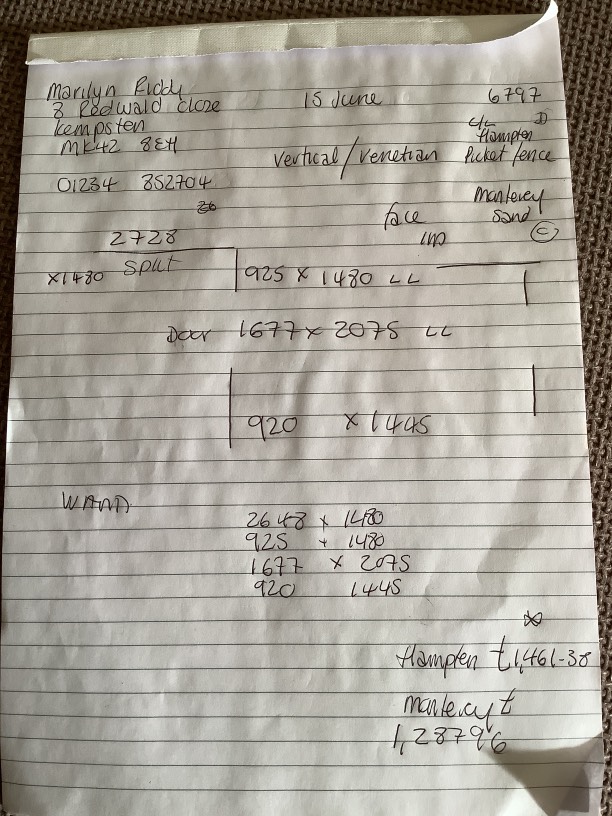 Marilyn Riddy 15 June 6797
8 Redwald Close
Kempsten C/C D
MK42 8EH Hampten
Vertical/Venetian Picket fence
01234 852704
Manterey
face sand
im C
2728
x1480 split 925 x 1480 LL
Door 1677 x 2075 LL
920 x 1445
WAND
2648 x 1480
925 + 1480
1677 x 2075
920 1445
Hampten £1,461-38
Manterey £
1,28796